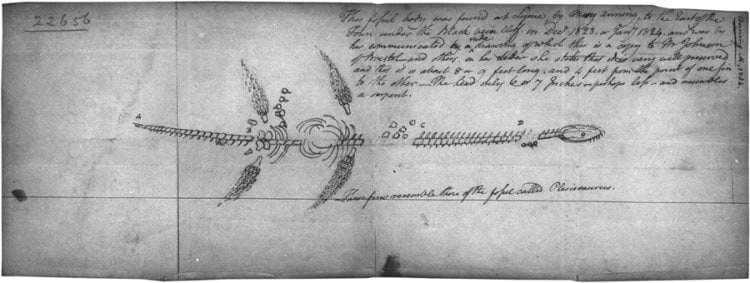 22656
This fossil body was found at Lyme, by Mary Anning, to the East of the
Town under the Black Cliff, in Decr 1823. or Jany 1824. and was by
her communicated by a rude drawing of which this is a copy to Mr Johnson
of Bristol and others. in her letter she states this was very well preserved
and this is about 8 or 9 feet long; and 4 feet from the point of one fin
to the other — The head only 6 or 7 Inches — perhaps less — and resembles
a serpent.
These fins resemble those of the fossil called Plesiosaurus.